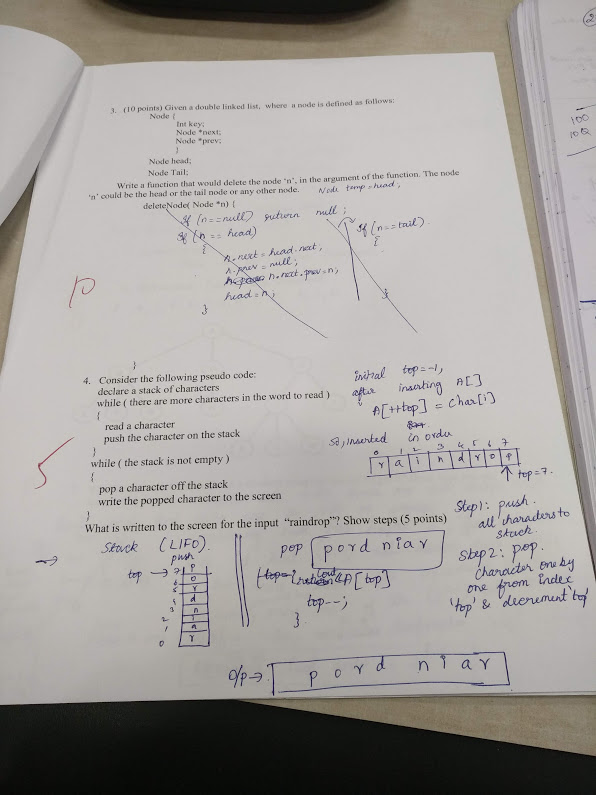 3. (10 points) Given a double linked list, where a node is defined as follows:
Node {
Int key;
Node *next;
Node *prev;
}
Node head;
Node Tail;
Write a function that would delete the node 'n', in the argument of the function. The node
'n' could be the head or the tail node or any other node.
Node temp = head;
deleteNode( Node *n) {
If (n==null) return null;
If (n == head)
{
n.next = head.next;
n.prev = null;
n.next.prev=n;
head=n;
}
If (n==tail)
{
}
10
}
4. Consider the following pseudo code:
declare a stack of characters
while ( there are more characters in the word to read )
{
read a character
push the character on the stack
}
while ( the stack is not empty )
{
pop a character off the stack
write the popped character to the screen
}
5
initial top=-1,
after inserting A[]
A[++top] = char[i]
so, inserted in order
0 1 2 3 4 5 6 7
r a i n d r o p
↑ top=7.
What is written to the screen for the input "raindrop"? Show steps (5 points)
→ Stack (LIFO).
push
top → 7 p
6 o
5 r
4 d
3 n
2 i
1 a
0 r
pop pord niar
{
A[top]
top--;
}
Step1: push.
all characters to
stack.
Step2: pop.
character one by
one from index
'top' & decrement 'top'
o/p→ pord niar
2
100